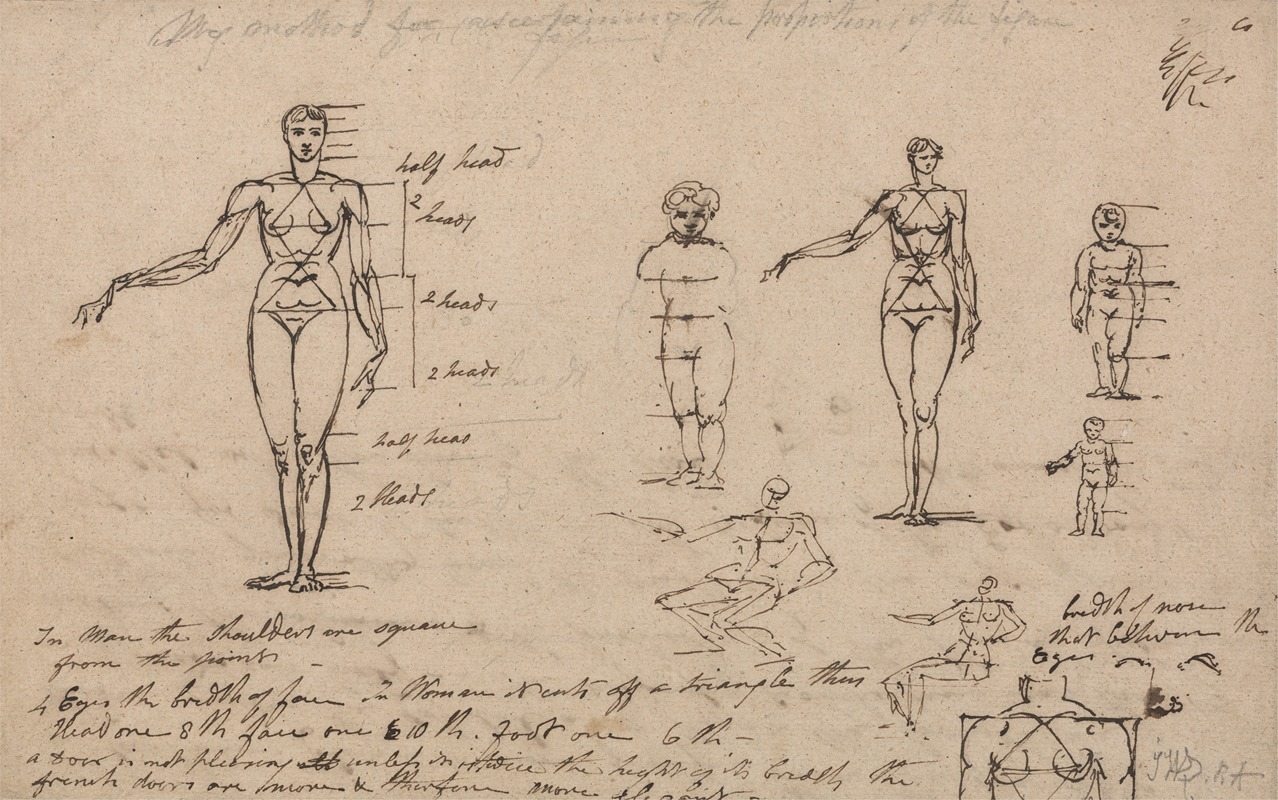 My method for ascertaining the proportions of the figure
half head
2
heads
2 heads
2 heads
half head
2 Heads
In Man the shoulders are square
from the points -
4 Eyes the bredth of face in Woman it cuts off a triangle thus
Head one 8 th face one 10 th. Foot one 6 th -
a Door is not pleasing unless it is twice the height of its bredth the
french doors are more & therefore more elegant -
bredth of nose
that between the
Eyes
RA